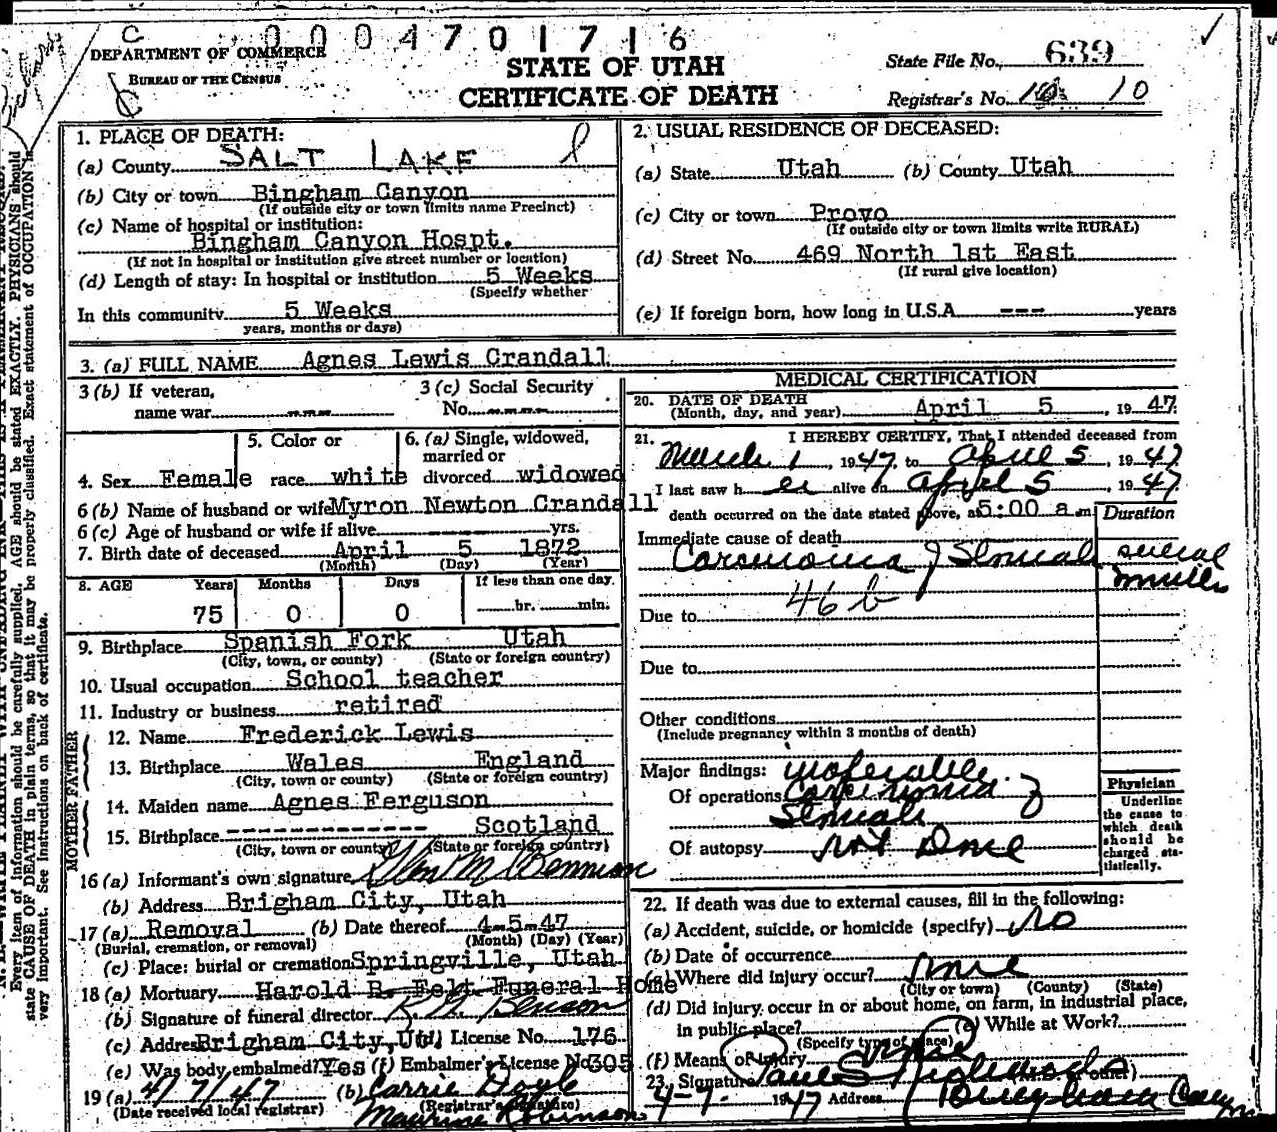 C 0004701716
DEPARTMENT OF COMMERCE
BUREAU OF THE CENSUS
STATE OF UTAH
CERTIFICATE OF DEATH
State File No. 639
Registrar's No. 10
1. PLACE OF DEATH:
(a) County SALT LAKE
(b) City or town Bingham Canyon
(If outside city or town limits name Precinct)
(c) Name of hospital or institution:
Bingham Canyon Hospt.
(If not in hospital or institution give street number or location)
(d) Length of stay: In hospital or institution 5 Weeks
(Specify whether
In this community 5 Weeks
years, months or days)
2. USUAL RESIDENCE OF DECEASED:
(a) State Utah (b) County Utah
(c) City or town Provo
(If outside city or town limits write RURAL)
(d) Street No. 469 North 1st East
(If rural give location)
(e) If foreign born, how long in U.S.A. --- years
3. (a) FULL NAME Agnes Lewis Crandall
3 (b) If veteran,
name war ---
3 (c) Social Security
No. ----
4. Sex Female
5. Color or
race white
6. (a) Single, widowed,
married or
divorced widowed
6 (b) Name of husband or wife Myron Newton Crandall
6 (c) Age of husband or wife if alive yrs.
7. Birth date of deceased April 5 1872
(Month) (Day) (Year)
8. AGE Years Months Days If less than one day
75 0 0 hr. min.
9. Birthplace Spanish Fork Utah
(City, town, or county) (State or foreign country)
10. Usual occupation School teacher
11. Industry or business retired
FATHER
12. Name Frederick Lewis
13. Birthplace Wales England
(City, town or county) (State or foreign country)
MOTHER
14. Maiden name Agnes Ferguson
15. Birthplace -------------- Scotland
(City, town or county) (State or foreign country)
16 (a) Informant's own signature Glen M Bennion
(b) Address Brigham City, Utah
17 (a) Removal (b) Date thereof 4-5-47
(Burial, cremation, or removal) (Month) (Day) (Year)
(c) Place: burial or cremation Springville, Utah
18 (a) Mortuary Harold B. Felt Funeral Home
(b) Signature of funeral director Benson
(c) Address Brigham City, Utd License No. 176
(e) Was body embalmed? Yes (f) Embalmer's License No 305
19 (a) 4/7/47 (b) Carrie Doyle
(Date received local registrar) (Registrar's signature)
Maurine Robinson
MEDICAL CERTIFICATION
20. DATE OF DEATH
(Month, day, and year) April 5, 1947
21. I HEREBY CERTIFY, That I attended deceased from
March 1, 1947, to April 5, 1947
I last saw h er alive on April 5 1947
death occurred on the date stated above, at 5:00 a m
Duration
Immediate cause of death
Carcinoma of Stomach several
months
46 b
Due to
Due to
Other conditions
(Include pregnancy within 3 months of death)
Major findings: inoperable
Of operations Carcinoma of
Stomach
Of autopsy Not Done
Physician
Underline
the cause to
which death
should be
charged sta-
tistically.
22. If death was due to external causes, fill in the following:
(a) Accident, suicide, or homicide (specify) No
(b) Date of occurrence
(c) Where did injury occur? none
(City or town) (County) (State)
(d) Did injury occur in or about home, on farm, in industrial place,
in public place? (e) While at Work?
(Specify type of place)
(f) Means of injury
23. Signature Paul S (M.D. or other)
4-7- 1947 Address Bingham Canyon
Every item of information should be carefully supplied. AGE should be stated EXACTLY. PHYSICIANS should
state CAUSE OF DEATH in plain terms, so that it may be properly classified. Exact statement of OCCUPATION is
very important. See instructions on back of certificate.